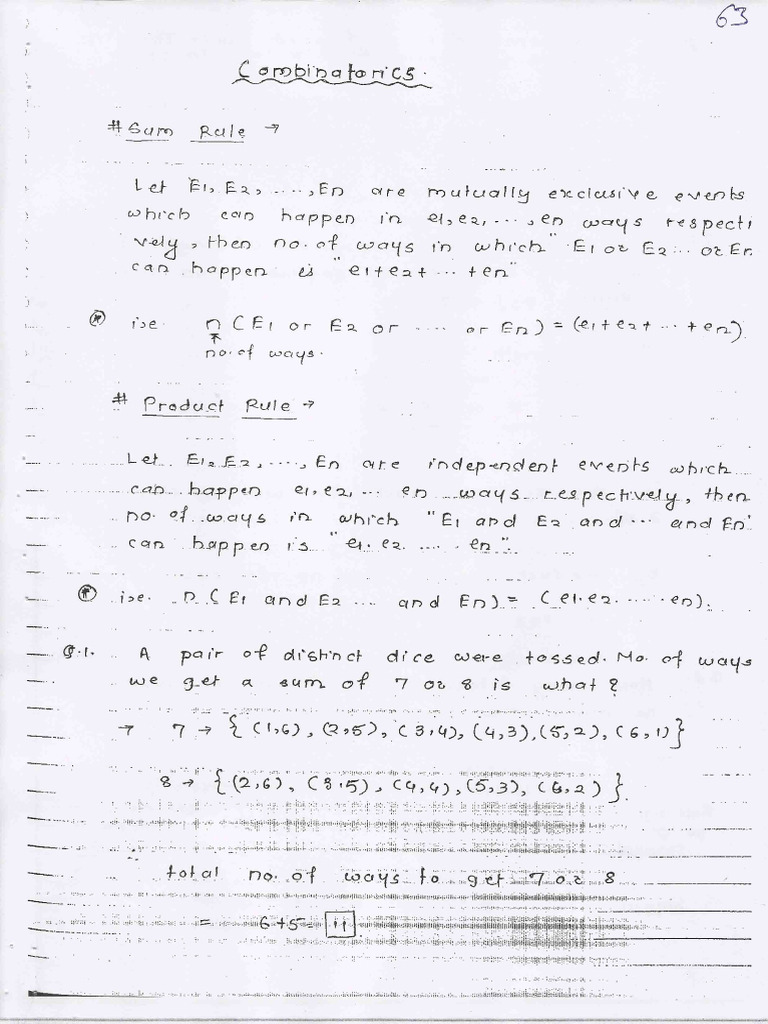 63
Combinatorics.
# Sum Rule →
Let E1, E2, ...., En are mutually exclusive events
which can happen in e1, e2, ..., en ways respecti
vely, then no. of ways in which "E1 or E2 ... or En
can happen is "e1+e2+ ... +en"
* i.e. n (E1 or E2 or .... or En) = (e1+e2+ ... +en)
↑
no. of ways.
# Product Rule →
Let E1, E2, ...., En are independent events which
can happen e1, e2, ... en ways respectively, then
no. of ways in which "E1 and E2 and ... and En"
can happen is "e1. e2. .... en".
* i.e. n (E1 and E2 ... and En) = (e1. e2. ..... en).
Q.1. A pair of distinct dice were tossed. No. of ways
we get a sum of 7 or 8 is what?
→ 7 → {(1,6), (2,5), (3,4), (4,3), (5,2), (6,1)}
8 → {(2,6), (3,5), (4,4), (5,3), (6,2)}.
∴ total no. of ways to get 7 or 8
= 6+5= 11